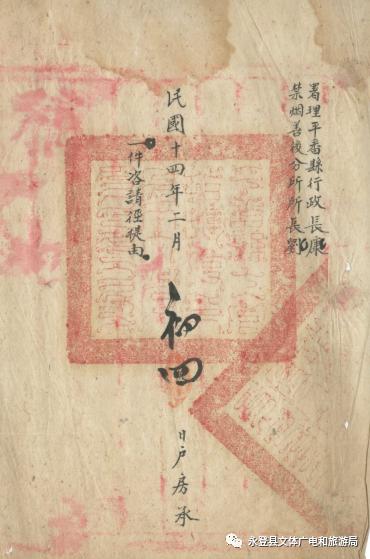 署理平番縣行政長康
禁烟善後分所所長劉
民國十四年二月初四日戶房承
一件咨請徑提由
永登县文体广电和旅游局